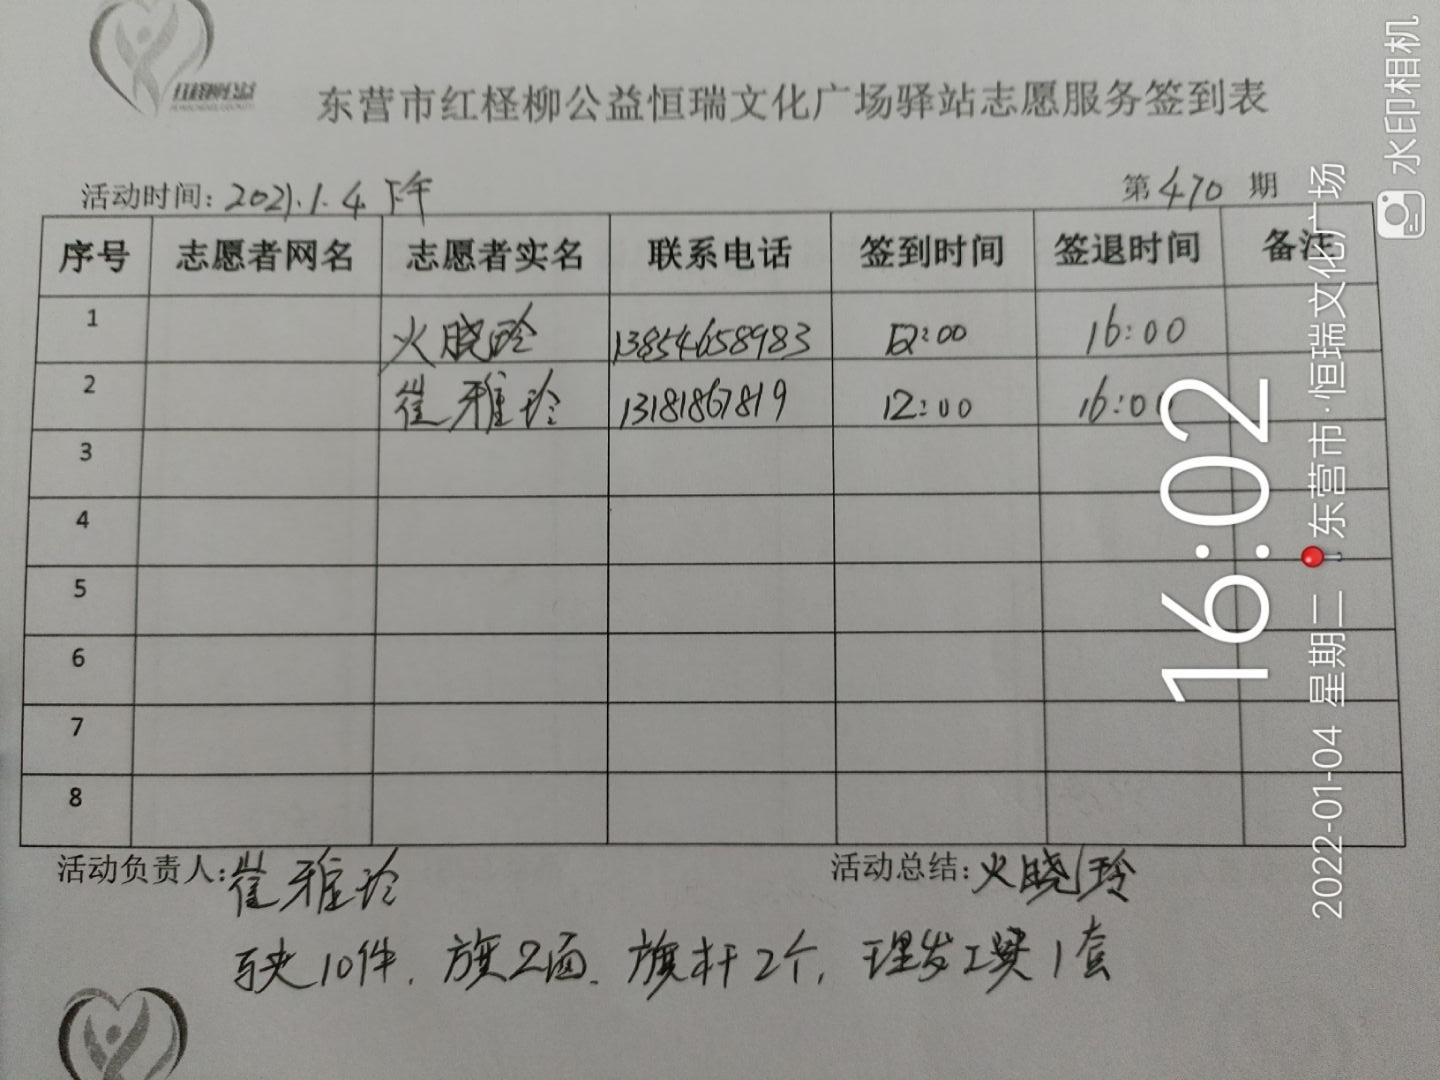 红柽柳公益
东营市红柽柳公益恒瑞文化广场驿站志愿服务签到表
活动时间：2021.1.4 下午 第470期
序号 志愿者网名 志愿者实名 联系电话 签到时间 签退时间 备注
1 火晓玲 13854658983 12:00 16:00
2 崔雅玲 13181867819 12:00 16:00
3
4
5
6
7
8
活动负责人：崔雅玲 活动总结：火晓玲
10件．旗2面．旗杆2个，理发工具1套
16:02
2022-01-04 星期二 东营市·恒瑞文化广场
水印相机